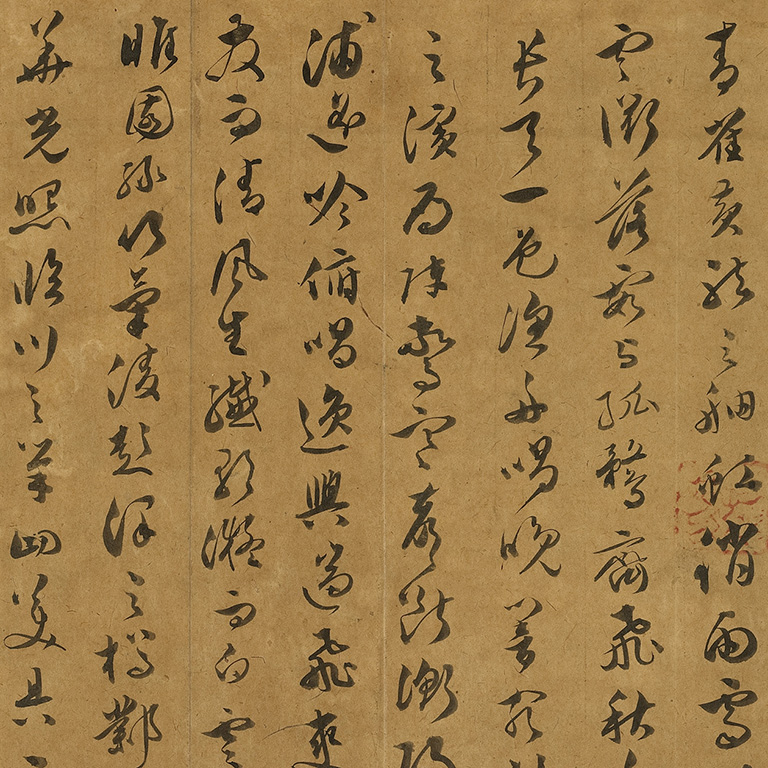 青雀黄龍之舳虹銷雨霽
雲衢落霞与孤鶩齊飛秋
長天一色漁舟唱晚響窮
之濱雁陣驚寒聲斷衡陽
浦遥吟俯唱逸興遄飛爽
發而清風生纖歌凝而白雲
睢園緑竹氣凌彭澤之樽鄴
華光照臨川之筆四美具